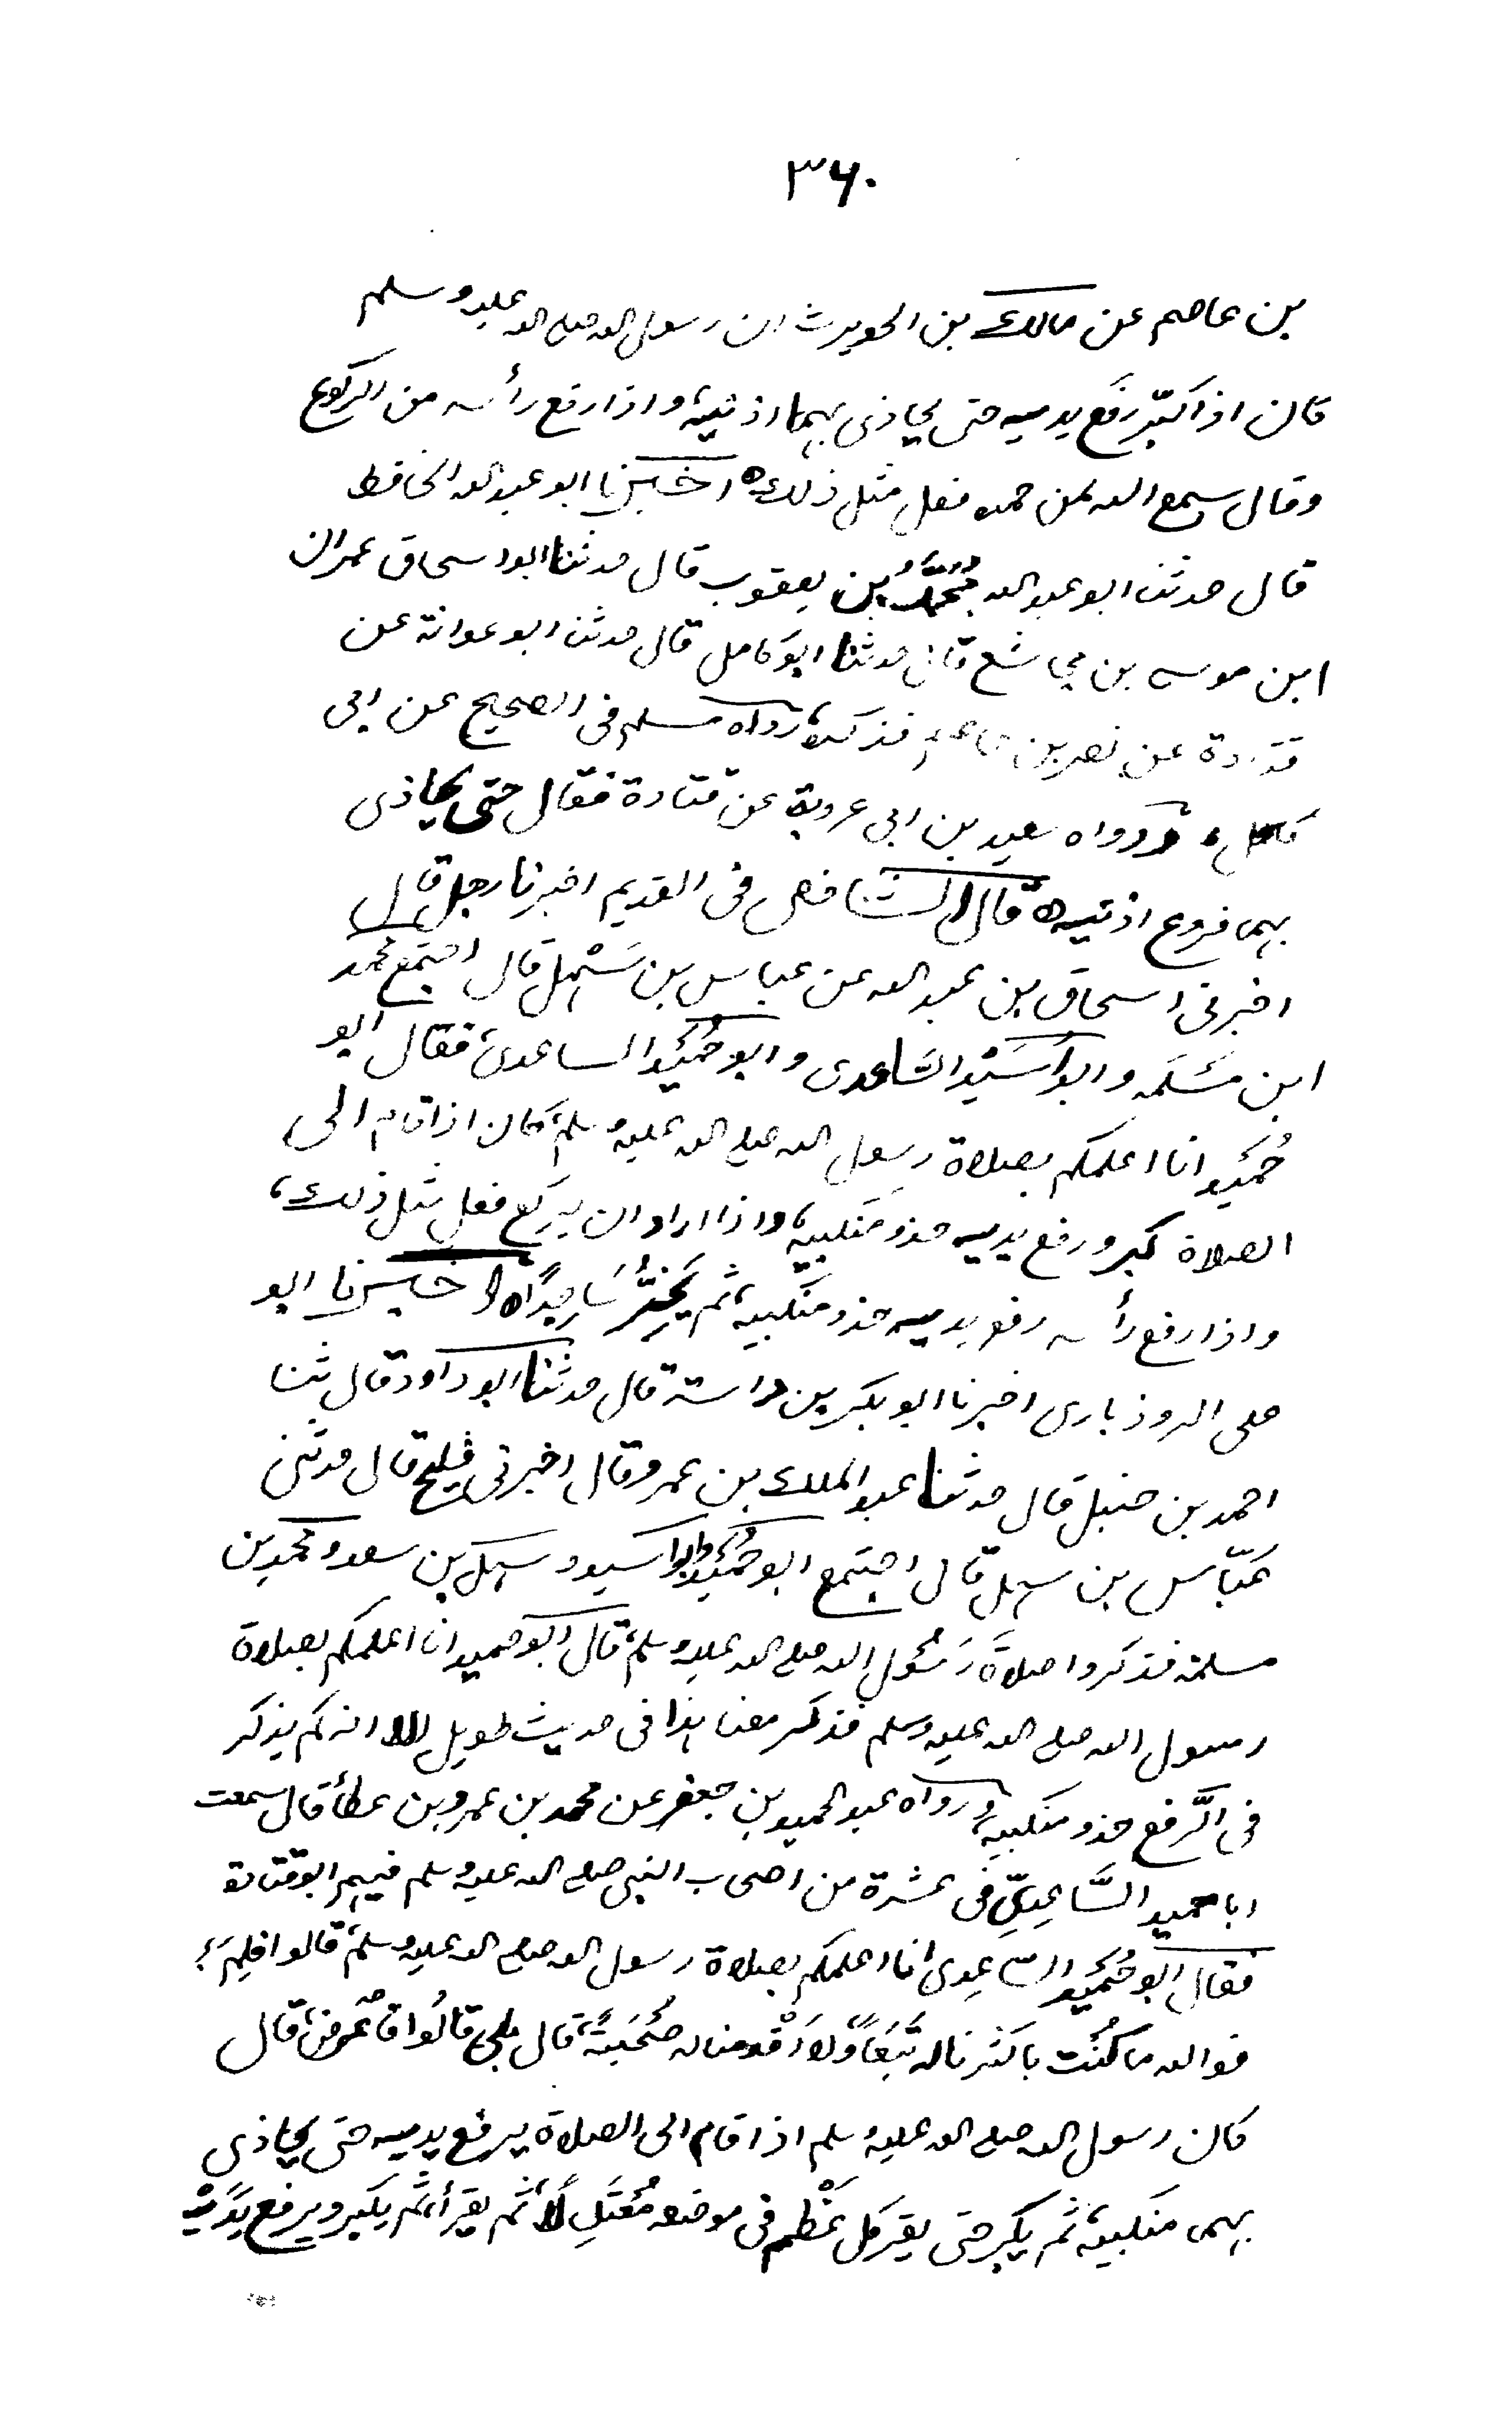 ٣٦٠
بن عاصم عن مالك بن الحويرث ان رسول الله صلى الله عليه وسلم
كان اذا كبّر رفع يديه حتى يحاذى بهما اذنيه، واذا رفع رأسه من الركوع
وقال سمع الله لمن حمده فعل مثل ذلك ه اخبرنا ابو عبد الله الحافظ
قال حدثنا ابو عبد الله مُحَمَّدُ بن يعقوب قال حدثنا ابو اسحاق عمران
ابن موسى بن مجاشع قال حدثنا ابو كامل قال حدثنا ابو عوانة عن
قتادة عن نصر بن عاصم فذكره، رواه مسلم فى الصحيح عن ابى
كامل، ورواه سعيد بن ابى عروبة عن قتادة فقال حتى يحاذى
بهما فروع اذنيه ه قال الشافعى فى القديم اخبرنا رجل قال
اخبرنى اسحاق بن عبد الله عن عباس بن سَهْل قال اجتمع محمد
ابن مَسْلَمه و ابو اُسَيْد السَّاعدى و ابو حُمَيْد الساعدى، فقال ابو
حُمَيْد انا اعلمكم بصلاة رسول الله صلى الله عليه وسلم، كان اذا قام الى
الصلاة كبر ورفع يديه حذو منكبيه، واذا اراد ان يركع فعل مثل ذلك،
واذا رفع رأسه رفع يديه حذو منكبيه، ثم يَخِرُّ سَاجِدًا ه اخبرنا ابو
على الروذبارى اخبرنا ابو بكر بن داسة قال حدثنا ابو داود قال ثنا
احمد بن حنبل قال حدثنا عبد الملك بن عمرو قال اخبرنى فليح قال حدثنى
عَبّاس بن سهل قال اجتمع ابو حُمَيْد وابو اسيد وسهل بن سعد ومحمد بن
مسلمة فذكروا صلاةَ رَسُول الله صلى الله عليه وسلم، قال ابو حميد انا اعلمكم بصلاة
رسول الله صلى الله عليه وسلم فذكر معنا هذا فى حديث طويل الا انه لم يذكر
فى الرَّفع حذو منكبيه، ورواه عبد الحميد بن جعفر عن محمد بن عمرو بن عطاء قال سمعت
ابا حميد السَّاعِدِىّ فى عشرة من اصحاب النبى صلى الله عليه وسلم فيهم ابو قتادة
فقال ابو حُمَيْد السّاعِدى انا اعلمكم بصلاة رسول الله صلى الله عليه وسلم، قالوا فلِمَ؟
فوالله ما كُنْت باكثرنا له تَبَعًا وَّلاَ اَقْدمنا له صُحْبَةً، قال بلى قالُوا فاعْرِضْ، قال
كان رسول الله صلى الله عليه وسلم اذا قام الى الصلاة يرفع يديه حتى يحاذى
بهما منكبيه، ثم يكبر حتى يقر كل عَظْم فى موضعه مُعْتَدِلًا، ثم يقرأ، ثم يكبر ويرفع يَدَيْه